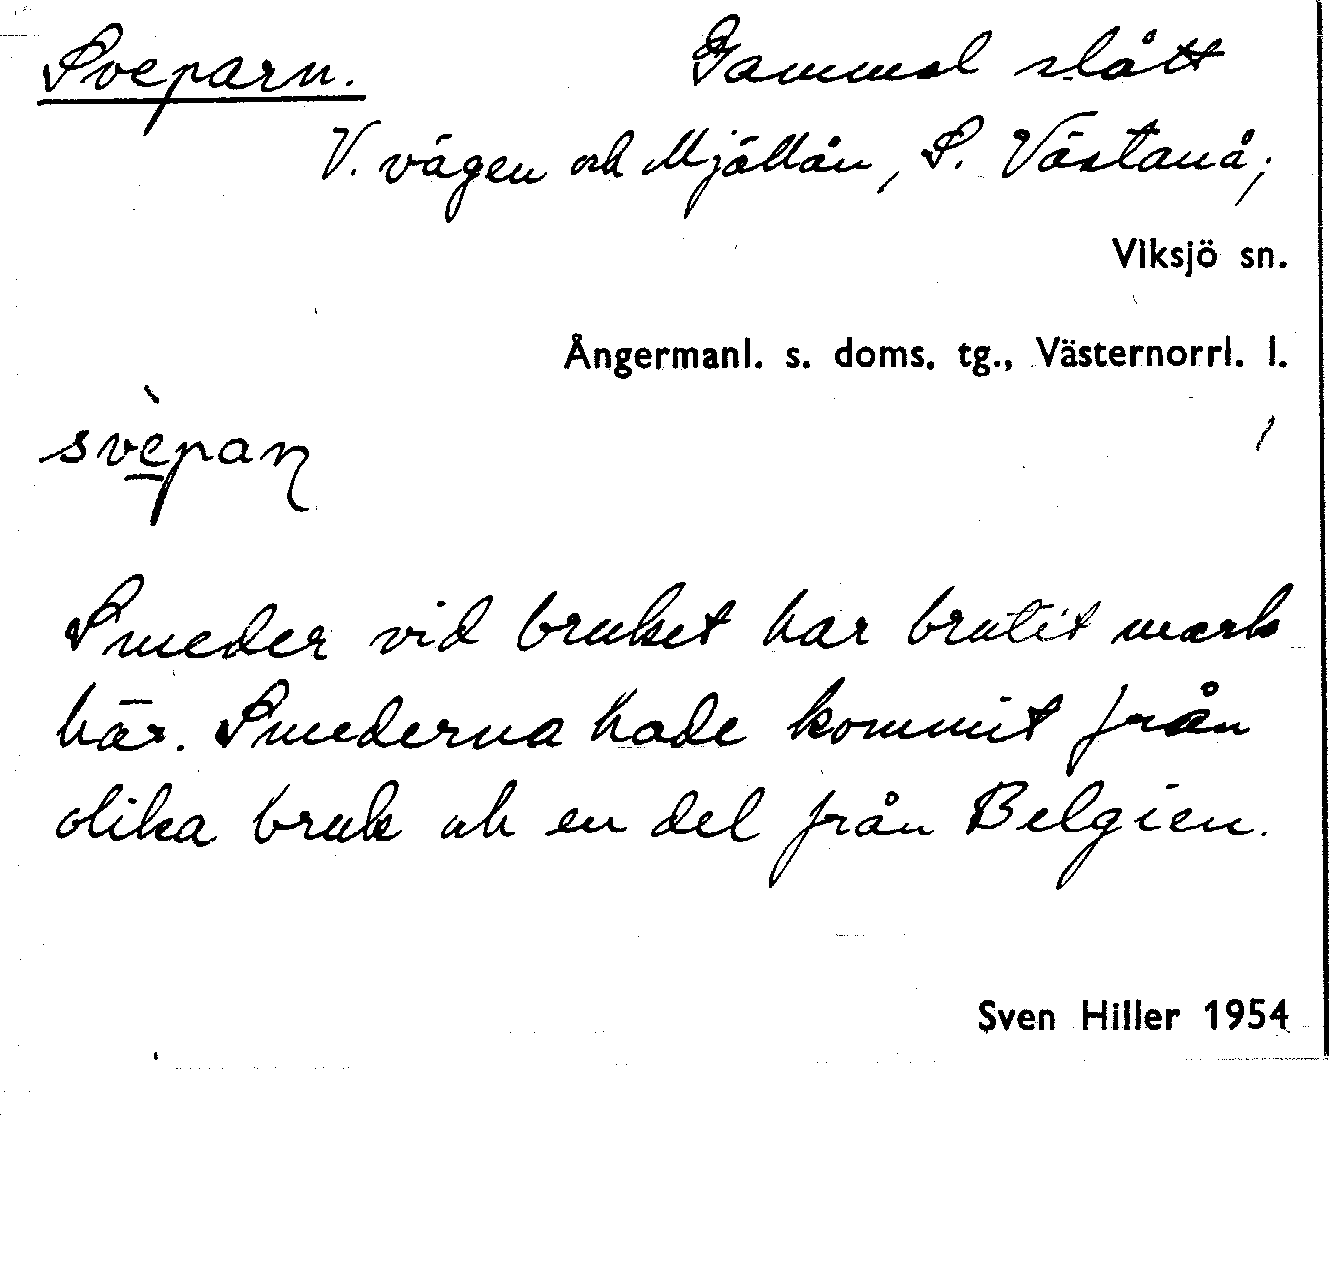 Sveparn. Gammal slått
V. vägen och Mjällån, S. Västanå;
Viksjö sn.
Ångermanl. s. doms. tg., Västernorrl. l.
svèpaɳ
Smeder vid bruket har brutit mark
här. Smederna hade kommit från
olika bruk och en del från Belgien.
Sven Hiller 1954